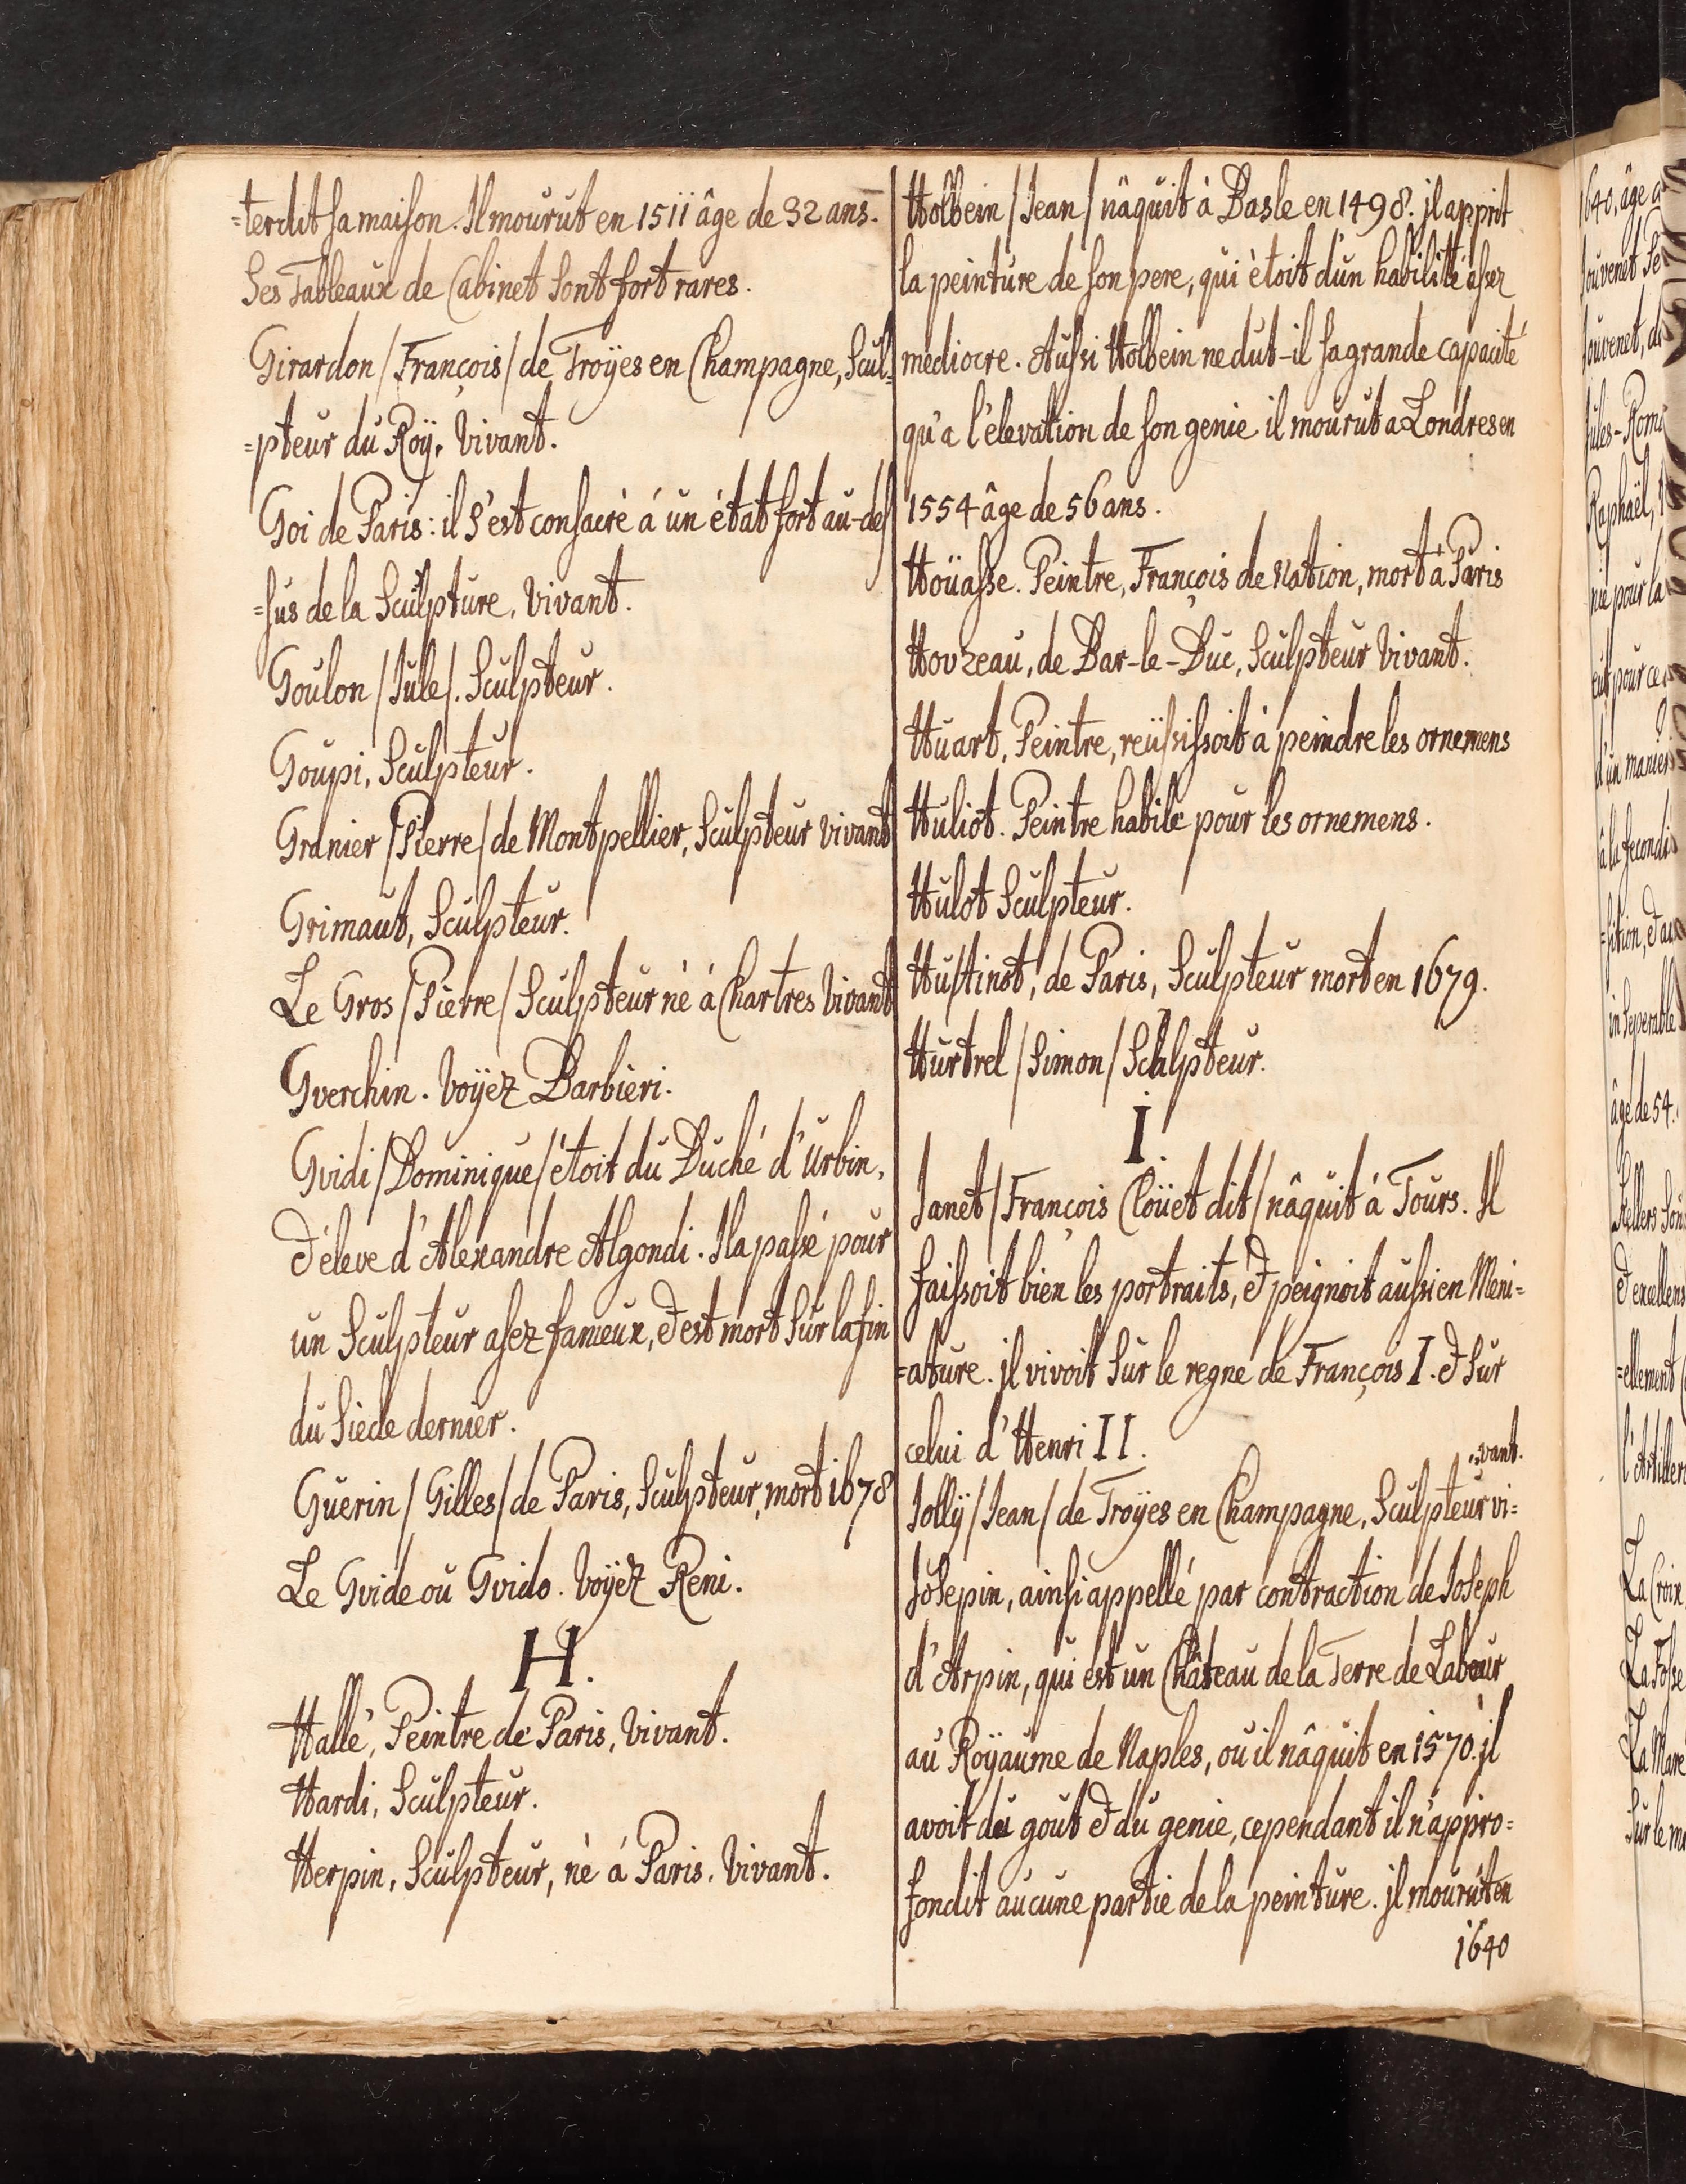 =terdit sa maison. Il mourut en 1511 âge de 32 ans.
Ses Tableaux de Cabinet sont fort rares.
Girardon / François / de Troÿes en Champagne, Scul=
=pteur du Roÿ, Vivant.
Goi de Paris: il s'est consacrè á un ètat fort au-des
=sus de la Sculpture, Vivant.
Goulon / Jule /. Sculpteur.
Goupi, Sculpteur.
Granier / Pierre / de Montpellier, Sculpteur vivant
Grimaut, Sculpteur.
Le Gros / Pierre / Sculpteur nè á Chartres Vivant
Gverchin. Voÿez Barbieri.
Gvidi / Dominique / étoit du Duché d'Urbin,
& éleve d'Alexandre Algondi. Il a passé pour
un Sculpteur assez fameux, & est mort sur la fin
du siecle dernier.
Guerin / Gilles / de Paris, Sculpteur, mort 1678
Le Gvide ou Gvido. Voÿez Reni.
H.
Hallé, Peintre de Paris, Vivant.
Hardi, Sculpteur.
Herpin, Sculpteur, nè á Paris. Vivant.
Holbein / Jean / nâquit à Basle en 1498. jl apprit
la peinture de son pere, qui ètoit d'un habilité assez
mediocre. Aussi Holbein ne dut-il sa grande capacité
qu'a l'élevation de son genie il mourut a Londres en
1554 âge de 56 ans.
Hoüasse. Peintre, François de Nation, mort á Paris
Hovzeau, de Bar-le-Duc, Sculpteur Vivant.
Huart, Peintre, reüssissoit à peindre les ornemens
Huliot. Peintre habile pour les ornemens.
Hulot Sculpteur.
Hustinot, de Paris, Sculpteur mort en 1679.
Hurtrel / Simon / Sculpteur.
I.
Janet / François Cloüet dit / nâquit á Tours. Il
faissoit bien les portraits, & peignoit aussi en Meni=
=ature. jl vivoit sur le regne de François I. & sur
celui d'Henri II.
vant.
Jollÿ / Jean / de Troÿes en Champagne, Sculpteur vi=
Josepin, ainsi appellé par contraction de Joseph
d'Arpin, qui est un Château de la Terre de Labour
au Roÿaume de Naples, ou il nâquit en 1570. jl
avoit du gout & du genie, cependant il n'appro=
fondit aucune partie de la peinture. jl mourut en
1640
1640, âge
Jouvenet
Jouvenet,
Jules-Rom
Raphaël,
nie pour la
eut pour ce
d'un manier
â la fecondi
=sition, & au
inseperable
âge de 54.
Kellers son
& excellens
=ellement
l'Artiller
La Croix
La Fosse
La Mare
Sur le